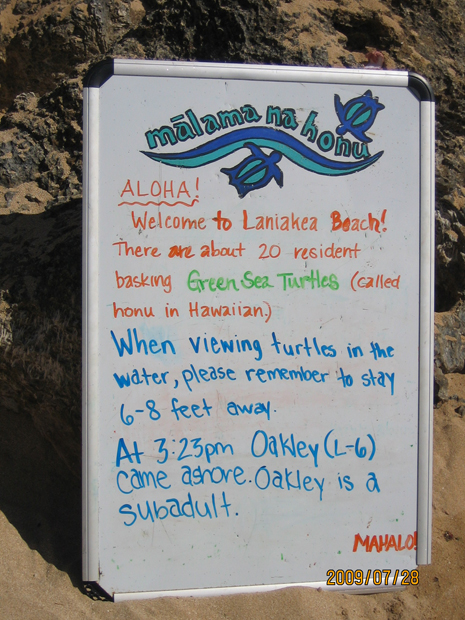 mālama na honu
ALOHA!
Welcome to Laniakea Beach!
There are about 20 resident
basking Green Sea Turtles (called
honu in Hawaiian.)
When viewing turtles in the
water, please remember to stay
6-8 feet away.
At 3:23pm Oakley (L-6)
came ashore. Oakley is a
subadult.
MAHALO!
2009/07/28